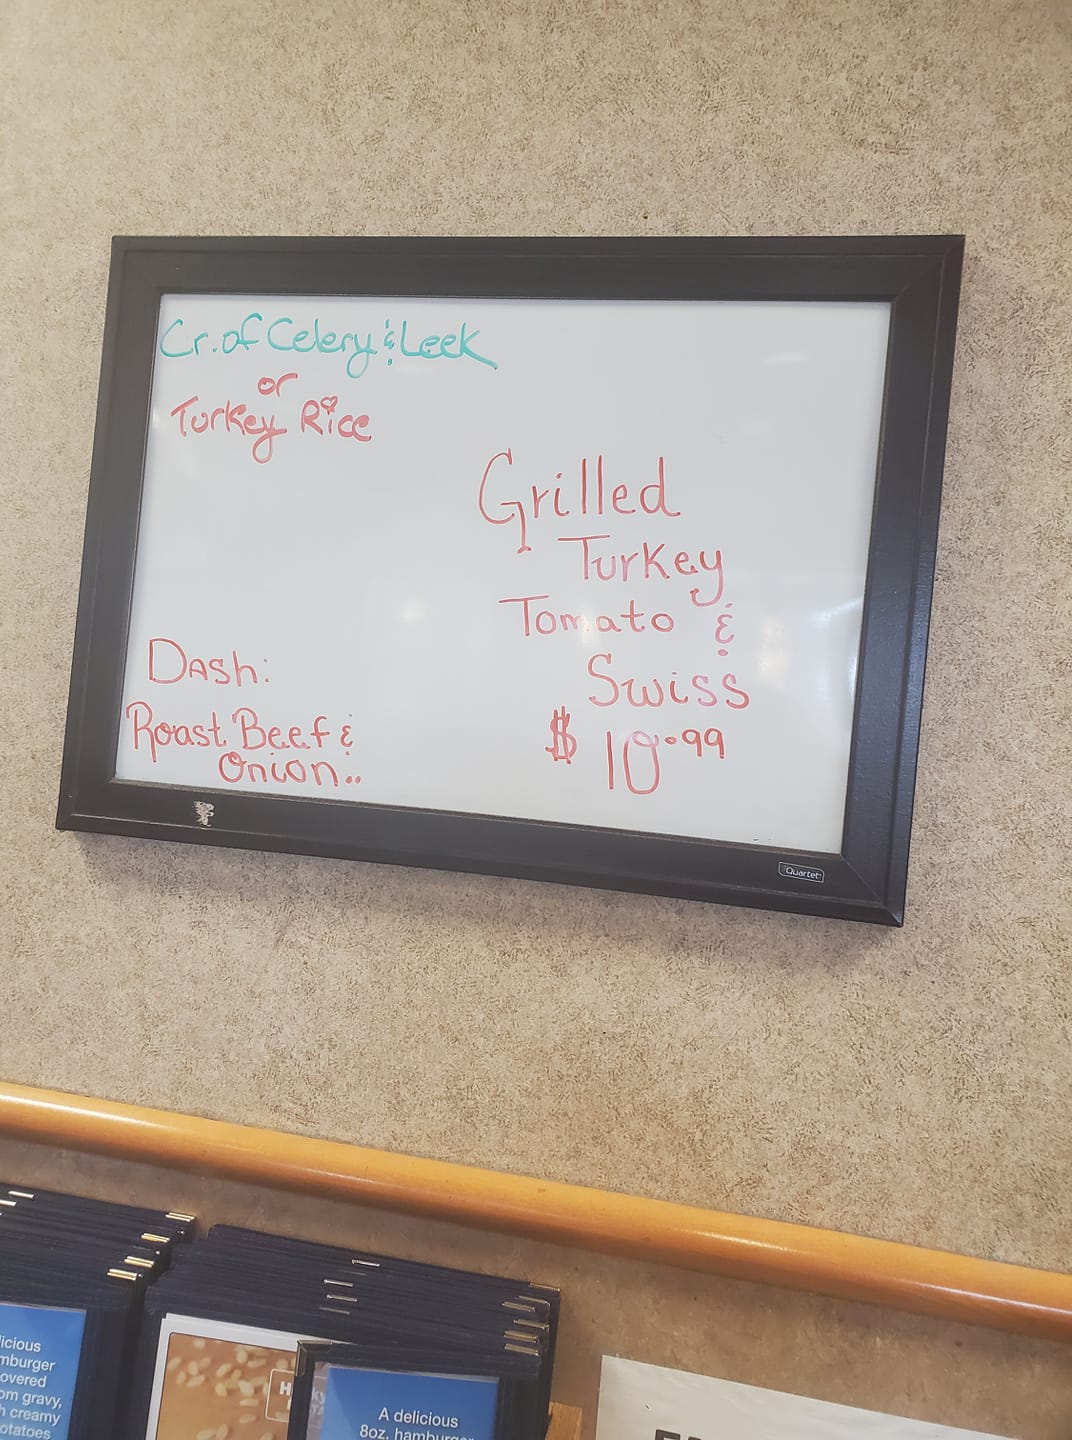 Cr. of Celery & Leek
or
Turkey Rice
Grilled
Turkey
Tomato &
Swiss
$10.99
Dash:
Roast Beef &
Onion..
Quartet
gravy,
creamy
A delicious
8oz. hamburger